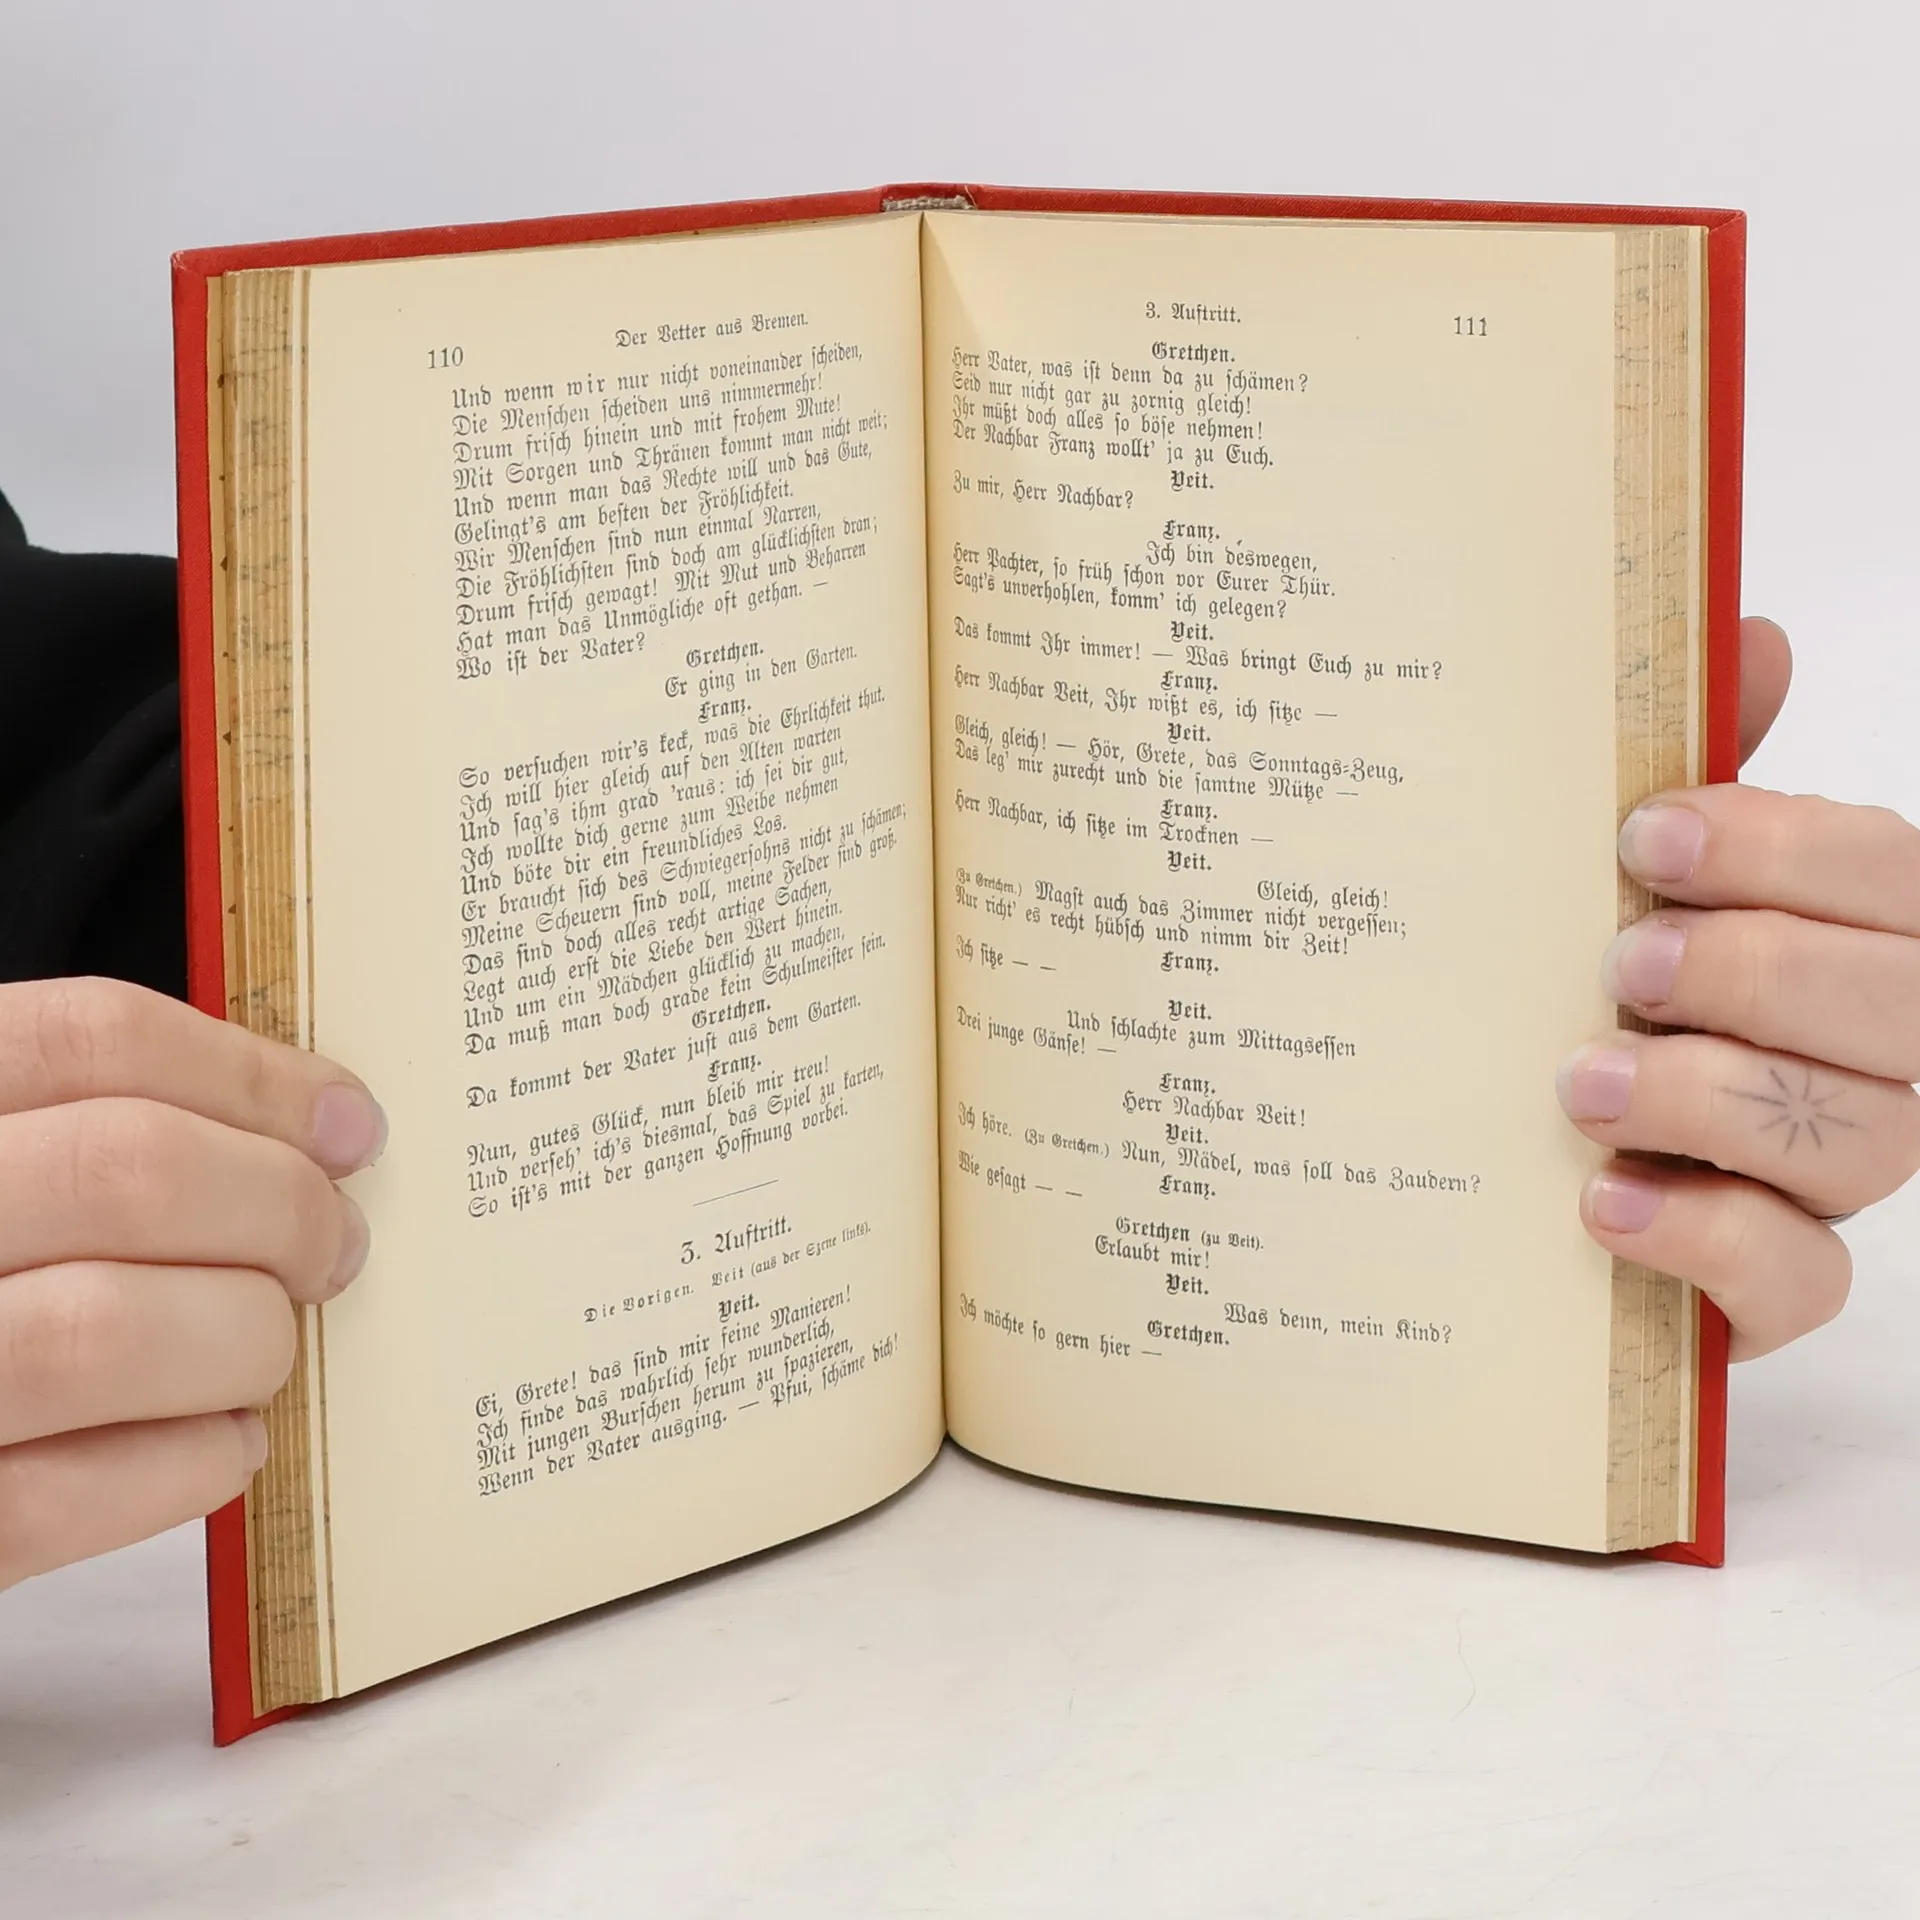 110
Der Vetter aus Bremen.
Und wenn wir nur nicht voneinander scheiden,
Die Menschen scheiden uns nimmermehr!
Drum frisch hinein und mit frohem Mute!
Mit Sorgen und Thränen kommt man nicht weit;
Und wenn man das Rechte will und das Gute,
Gelingt's am besten der Fröhlichkeit.
Wir Menschen sind nun einmal Narren,
Die Fröhlichsten sind doch am glücklichsten dran;
Drum frisch gewagt! Mit Mut und Beharren
Hat man das Unmögliche oft gethan. —
Wo ist der Vater?
Gretchen.
Er ging in den Garten.
Franz.
So versuchen wir's keck, was die Ehrlichkeit thut.
Ich will hier gleich auf den Alten warten
Und sag's ihm grad 'raus: ich sei dir gut,
Ich wollte dich gerne zum Weibe nehmen
Und böte dir ein freundliches Los.
Er braucht sich des Schwiegersohns nicht zu schämen;
Meine Scheuern sind voll, meine Felder sind groß.
Das sind doch alles recht artige Sachen,
Legt auch erst die Liebe den Wert hinein.
Und um ein Mädchen glücklich zu machen,
Da muß man doch grade kein Schulmeister sein.
Gretchen.
Da kommt der Vater just aus dem Garten.
Franz.
Nun, gutes Glück, nun bleib mir treu!
Und verseh' ich's diesmal, das Spiel zu karten,
So ist's mit der ganzen Hoffnung vorbei.
3. Auftritt.
Die Vorigen. Veit (aus der Szene links).
Veit.
Ei, Grete! das sind mir feine Manieren!
Ich finde das wahrlich sehr wunderlich,
Mit jungen Burschen herum zu spazieren,
Wenn der Vater ausging. — Pfui, schäme dich!
3. Auftritt.
111
Gretchen.
Herr Vater, was ist denn da zu schämen?
Seid nur nicht gar zu zornig gleich!
Ihr müßt doch alles so böse nehmen!
Der Nachbar Franz wollt' ja zu Euch.
Veit.
Zu mir, Herr Nachbar?
Franz.
Ich bin deswegen,
Herr Pachter, so früh schon vor Eurer Thür.
Sagt's unverhohlen, komm' ich gelegen?
Veit.
Das kommt Ihr immer! — Was bringt Euch zu mir?
Franz.
Herr Nachbar Veit, Ihr wißt es, ich sitze —
Veit.
Gleich, gleich! — Hör, Grete, das Sonntags-Zeug,
Das leg' mir zurecht und die samtne Mütze —
Franz.
Herr Nachbar, ich sitze im Trocknen —
Veit.
Gleich, gleich!
(Zu Gretchen.) Magst auch das Zimmer nicht vergessen;
Nur richt' es recht hübsch und nimm dir Zeit!
Franz.
Ich sitze — —
Veit.
Und schlachte zum Mittagsessen
Drei junge Gänse! —
Franz.
Herr Nachbar Veit!
Veit.
Ich höre. (Zu Gretchen.) Nun, Mädel, was soll das Zaudern?
Franz.
Wie gesagt — —
Gretchen (zu Veit).
Erlaubt mir!
Veit.
Was denn, mein Kind?
Gretchen.
Ich möchte so gern hier —